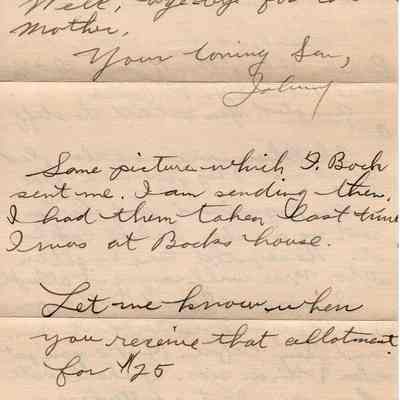 Well, bye bye for
Mother,
Your loving Son,
Johnny
Some picture which F. Bock
sent me. I am sending them,
I had them taken last time
I was at Bocks house.
Let me know when
you receive that allotment
for $25